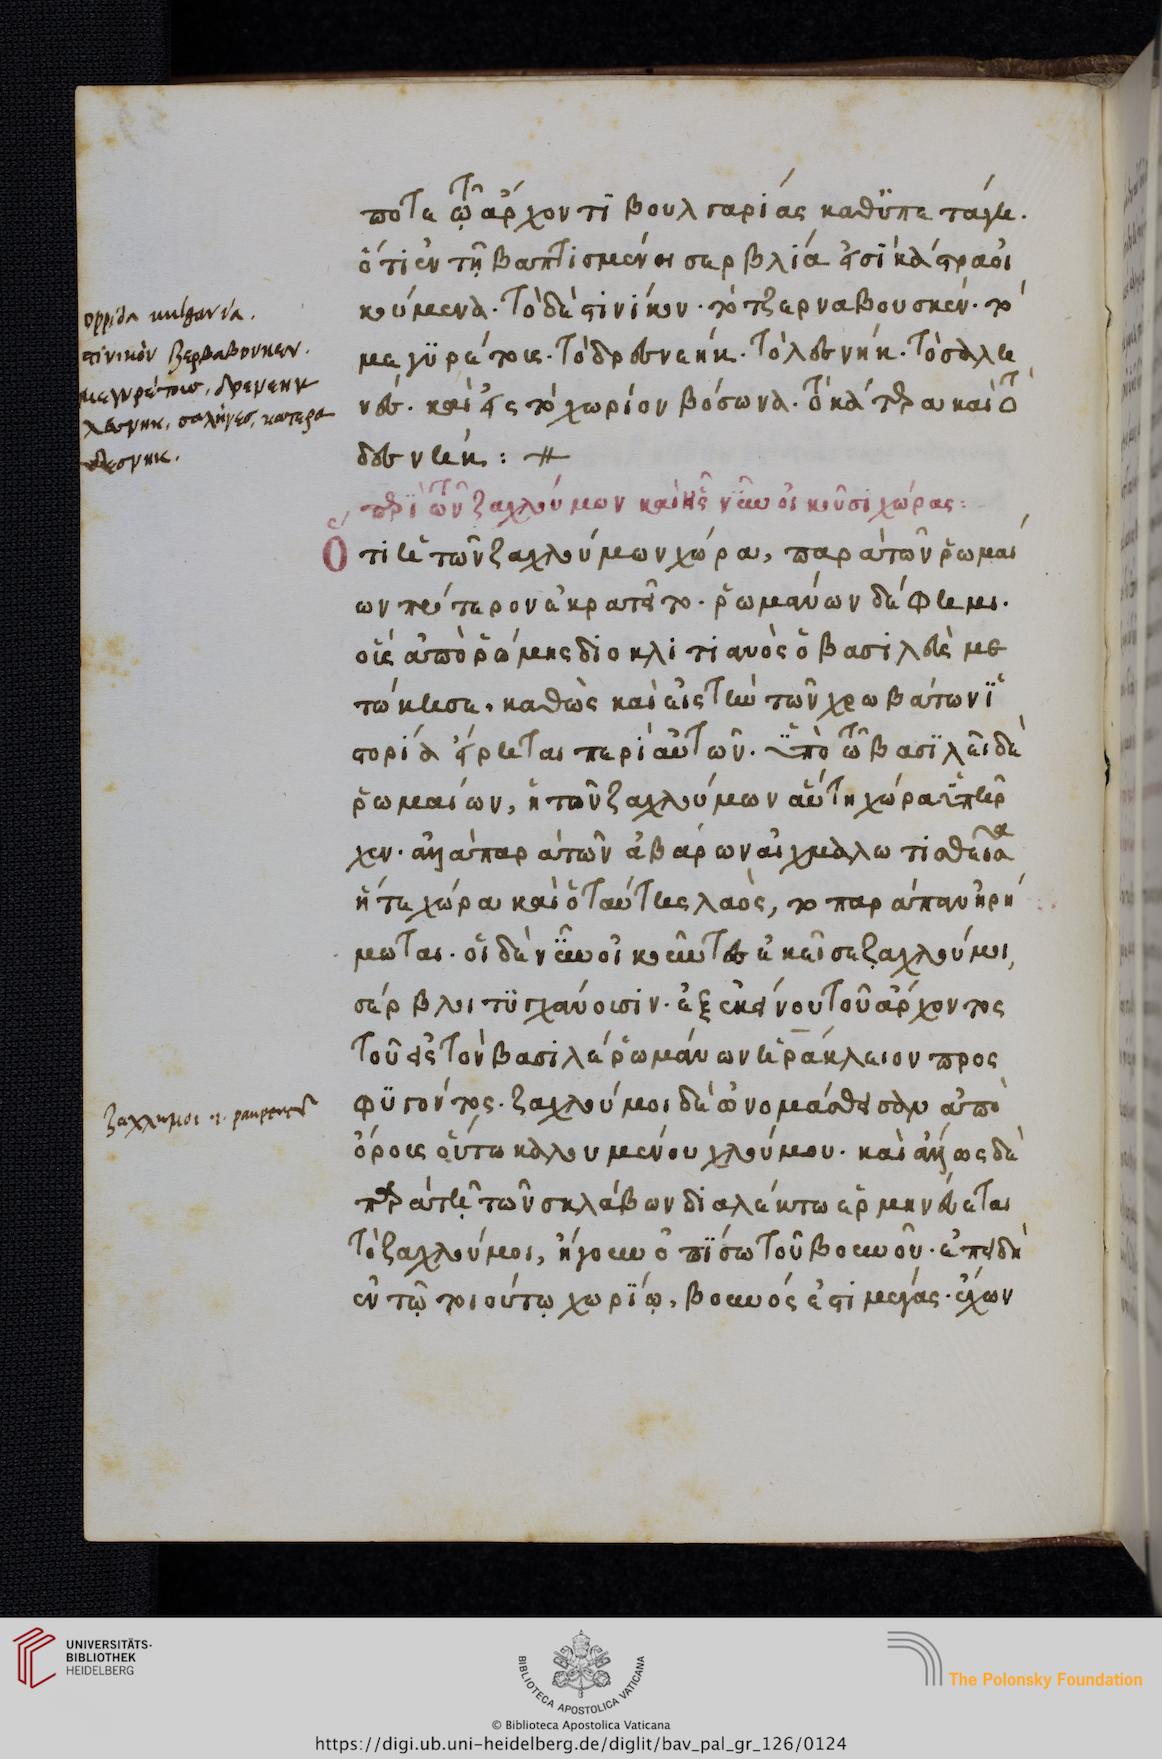 ποτε τῷ ἄρχοντι βουλγαρίας καθϋπετάγη.
ὅτι ἐν τῇ βαπτισμένοι σερβλία εἰσὶ κάστρα οἰ
κούμενα· τὸ δεστινίκον· τὸ τζερναβουσκεή· τὸ
μεγϋρέτους· τὸ δρεσνεήκ· τὸ λεσνήκ· τὸ σαλη
νές· καὶ εἰς τὸ χωρίον βόσωνα· τὸ κάτερα καὶ τὸ
δεσνήκ:
περὶ τῶν ζαχλούμων καὶ ἧς νῦν οἰκοῦσι χώρας:
Ὅτι ἡ τῶν ζαχλούμων χώρα, παρὰ τῶν ῥωμαί
ων πρότερον ἐκρατεῖτο· ῥωμάνων δέ φημι·
οὓς ἀπὸ ῥώμης διοκλιτιανὸς ὁ βασιλεὺς με
τώκησε· καθὼς καὶ εἰς τὴν τῶν χρωβάτων ἱ
στορία εἴρηται περὶ αὐτῶν. ὑπὸ τῶ βασϊλεῖ δὲ
ῥωμαίων, ἡ τῶν ζαχλούμων αὕτη χώρα ὑπῆρ
χεν· ἀλλὰ παρὰ τῶν ἀβάρων αἰχμαλωτισθεῖσα
ἥ τε χώρα καὶ ὁ ταύτης λαὸς, τὸ παράπαν ἠρή
μωται· οἱ δὲ νῦν οἰκοῦντες ἐκεῖσε ζαχλούμοι,
σέρβλοι τϋγχάνουσιν· ἐξ ἐκείνου τοῦ ἄρχοντος
τοῦ εἰς τὸν βασιλέα ῥωμάνων ἡράκλειον προς
φϋγόντος· ζαχλούμοι δὲ ὠνομάσθησαν ἀπὸ
ὄρους οὕτω καλουμένου χλούμου· καὶ ἄλλως δὲ
παρὰ τῇ τῶν σκλάβων διαλέκτω ἑρμηνεύεται
τὸ ζαχλούμοι, ἤγουν ὀπίσω τοῦ βουνοῦ· ἐπειδὴ
ἐν τῷ τοιούτῳ χωρίῳ, βουνός ἐστι μέγας· ἔχων
oppida vulgaria.
στινικὸν ζερβαβουκεη.
μεγυρέτους, δρεγεηκ
λεσγηκ, σαληγες, κατερα
δεσγηκ.
ζαχλωμοι
UNIVERSITÄTS-
BIBLIOTHEK
HEIDELBERG
BIBLIOTECA APOSTOLICA VATICANA
© Biblioteca Apostolica Vaticana
The Polonsky Foundation
https://digi.ub.uni-heidelberg.de/diglit/bav_pal_gr_126/0124